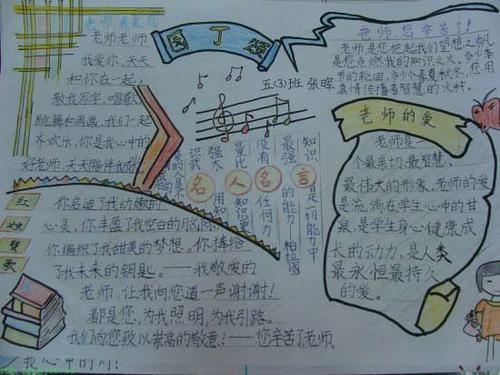 老师我爱您
老师老师
我爱你,天天
和你在一起,
教我写字,唱歌
跳舞和画画,我们一起
齐欢乐,你是我心中的
好老师,天天陪伴我
园丁颂
五(3)班 张晖
老师,您辛苦了!
老师是您把起我们望想之帆
是您点燃我的知识之火。多少季
节的轮回,多少个春夏秋冬,您用
真情传播着智慧的火种。
名人名言
知识是一切能力中
最强的能力 柏拉图
没有任何力
量比知识更
强大
老师的爱
老师是一
个最亲切,最智慧,
最伟大的形象,老师的爱
是流淌在学生心中的甘
泉,是学生身心健康成
长的动力,是人类
最永恒最持久
的爱。
红烛赞歌
你启迪了我幼嫩的
心灵,你丰盈了我空白的脑
你编织了我甜美的梦想。你捧给
了我未来的钥匙。——我敬爱的
老师,让我向您道一声谢谢!
都是您,为我照明,为我引路。
我们向您致以崇高的敬意!——您辛苦了老师。
我心中的